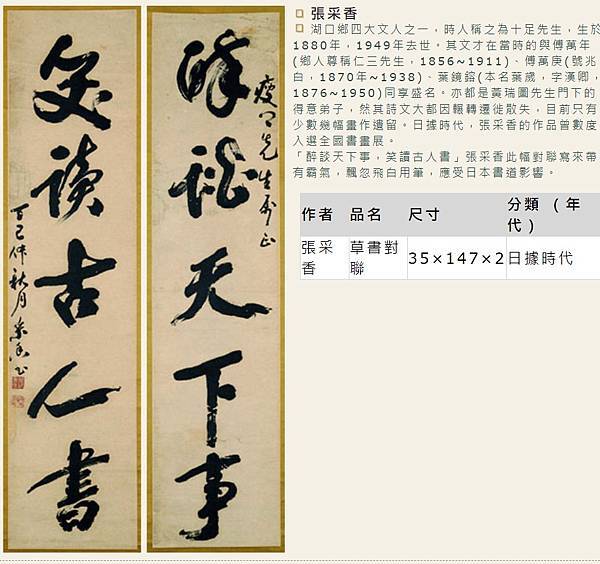 醉談天下事
先生
笑讀古人書
丁巳仲秋月采香
張采香
湖口鄉四大文人之一，時人稱之為十足先生，生於
1880年，1949年去世。其文才在當時的與傅萬年
(鄉人尊稱仁三先生，1856~1911)、傅萬庚(號兆
白，1870年~1938)、葉鏡鎔(本名葉歲，字漢卿，
1876~1950)同享盛名。亦都是黃瑞圖先生門下的
得意弟子，然其詩文大都因輾轉遷徙散失，目前只有
少數幾幅畫作遺留。日據時代，張采香的作品曾數度
入選全國書畫展。
「醉談天下事，笑讀古人書」張采香此幅對聯寫來帶
有霸氣，飄忽飛白用筆，應受日本書道影響。
作者 品名 尺寸 分類（年代）
張采香 草書對聯 35×147×2 日據時代